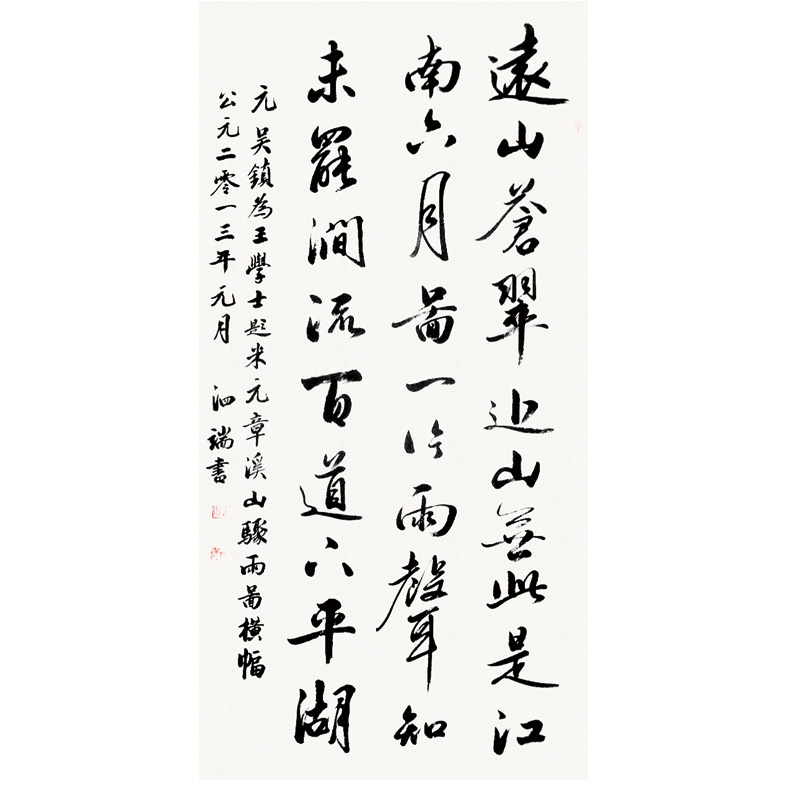 遠山蒼翠近山無此是江
南六月圖一片雨聲知
未罷澗流百道入平湖
元吳鎮為王學士題米元章溪山驟雨圖橫幅
公元二零一三年元月 泗端書